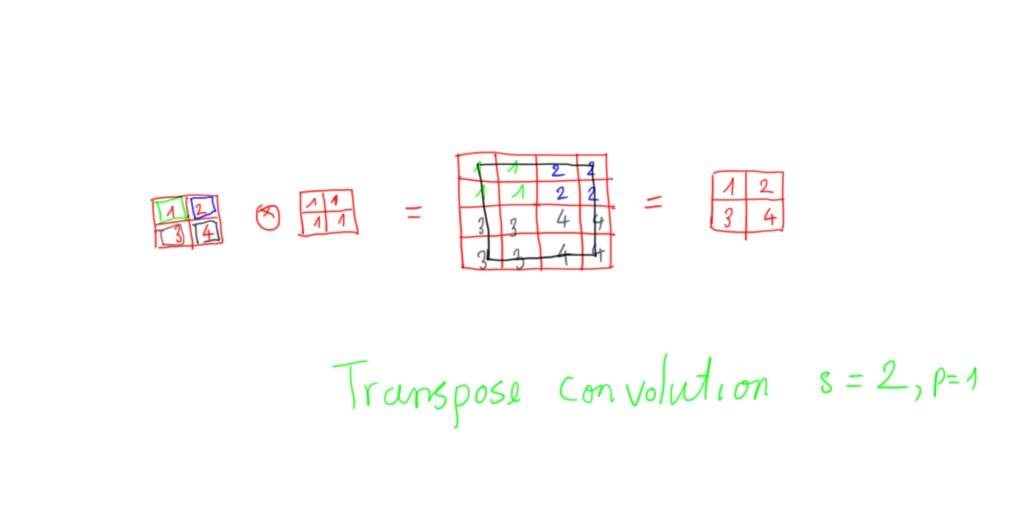 1 2
3 4
⊛
1 1
1 1
=
1 1 2 2
1 1 2 2
3 3 4 4
3 3 4 4
=
1 2
3 4
Transpose convolution s = 2, p=1